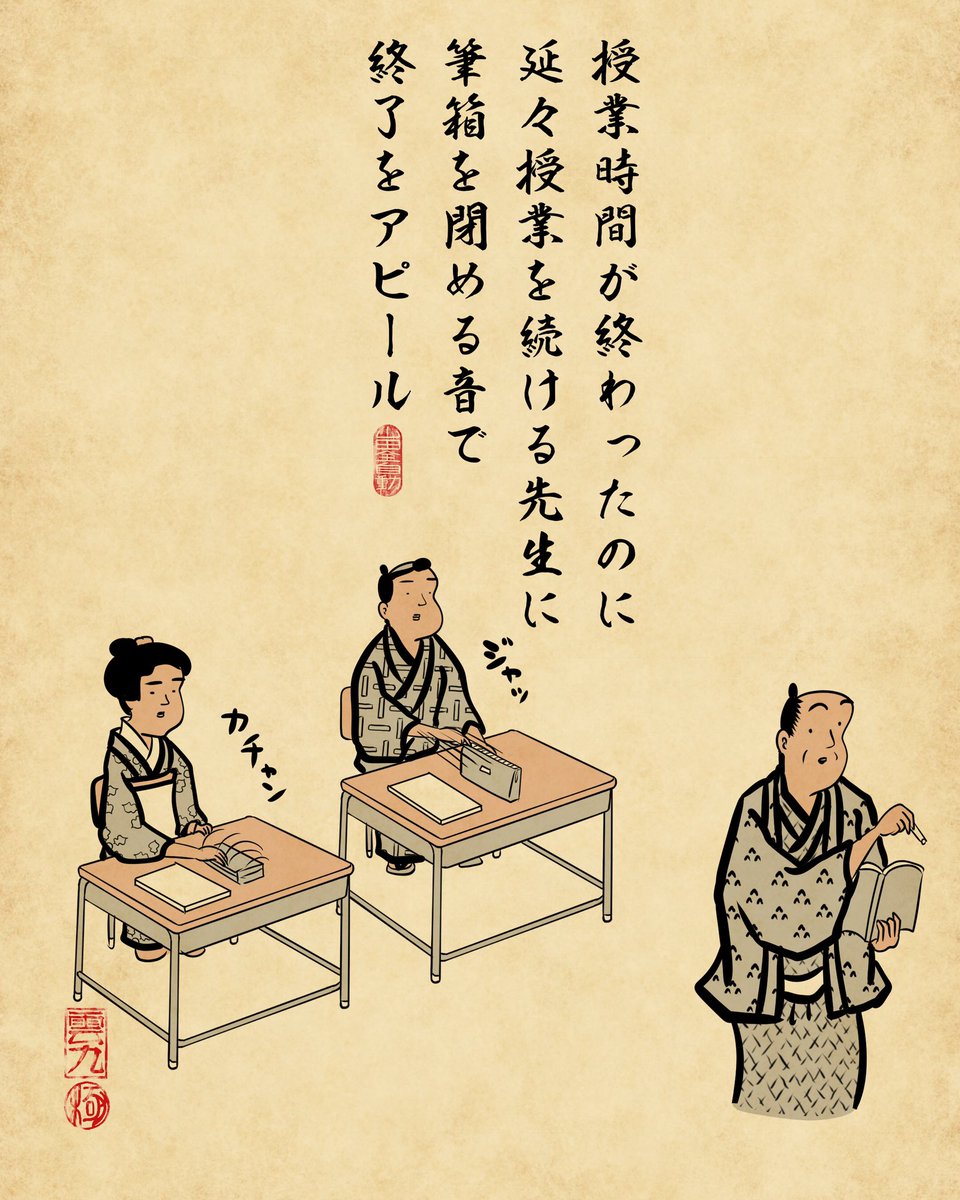 授業時間が終わったのに
延々授業を続ける先生に
筆箱を閉める音で
終了をアピール
ジャッ
カチャン
雲九
極